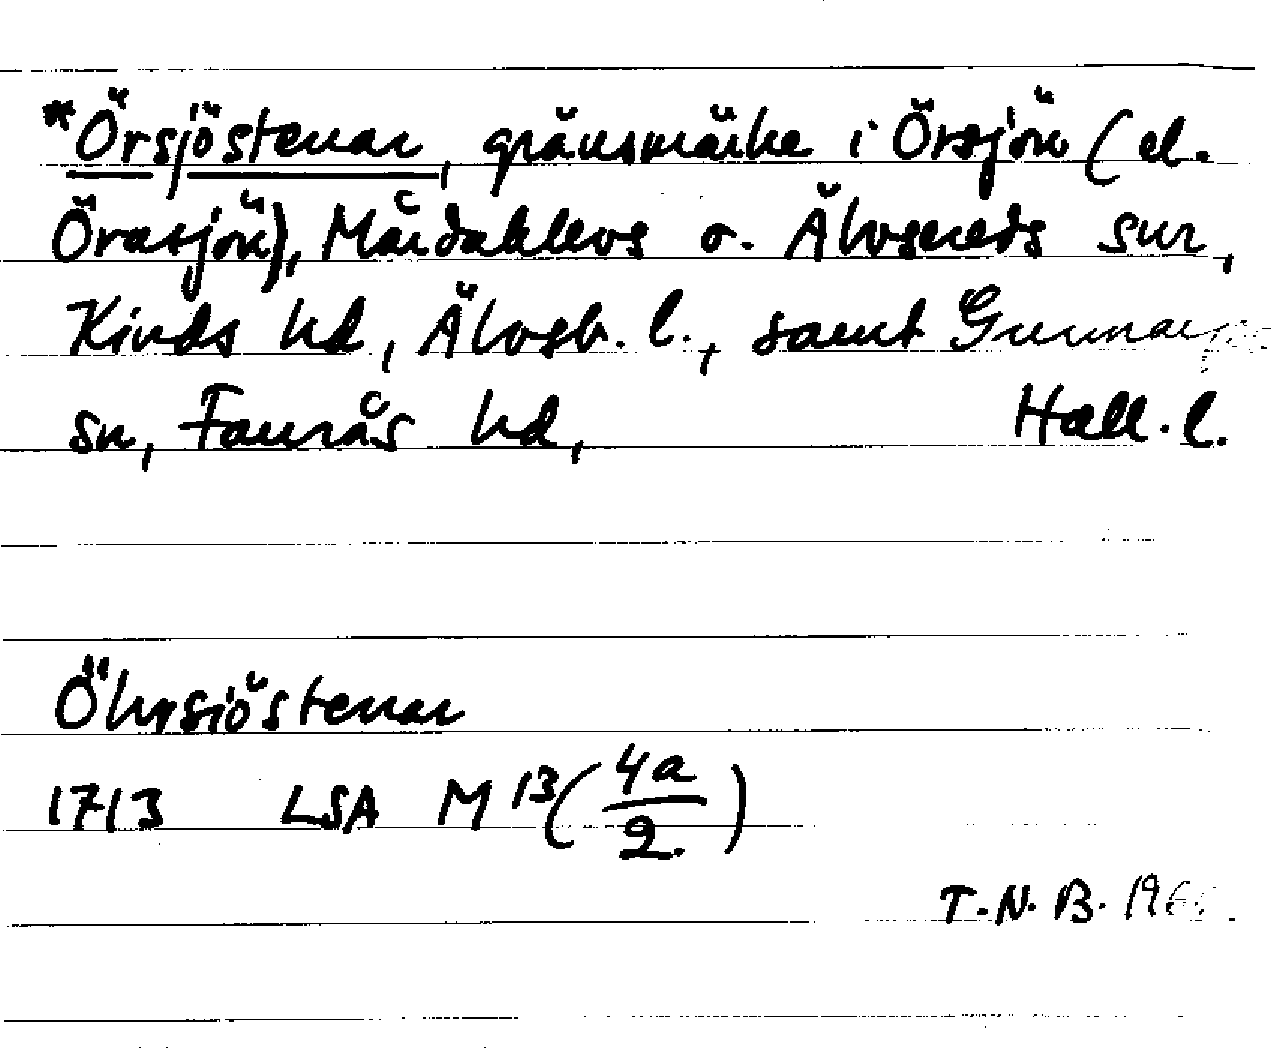 *Örsjöstenar, gränsmärke i Örsjön (el.
Örasjön), Mårdaklevs o. Älvsereds snr,
Kinds hd, Älvsb. l., samt
sn, Faurås hd, Hall. l.
Öhrsiöstenar
1713 LSA M 13 (4a/2)
T.N.B.